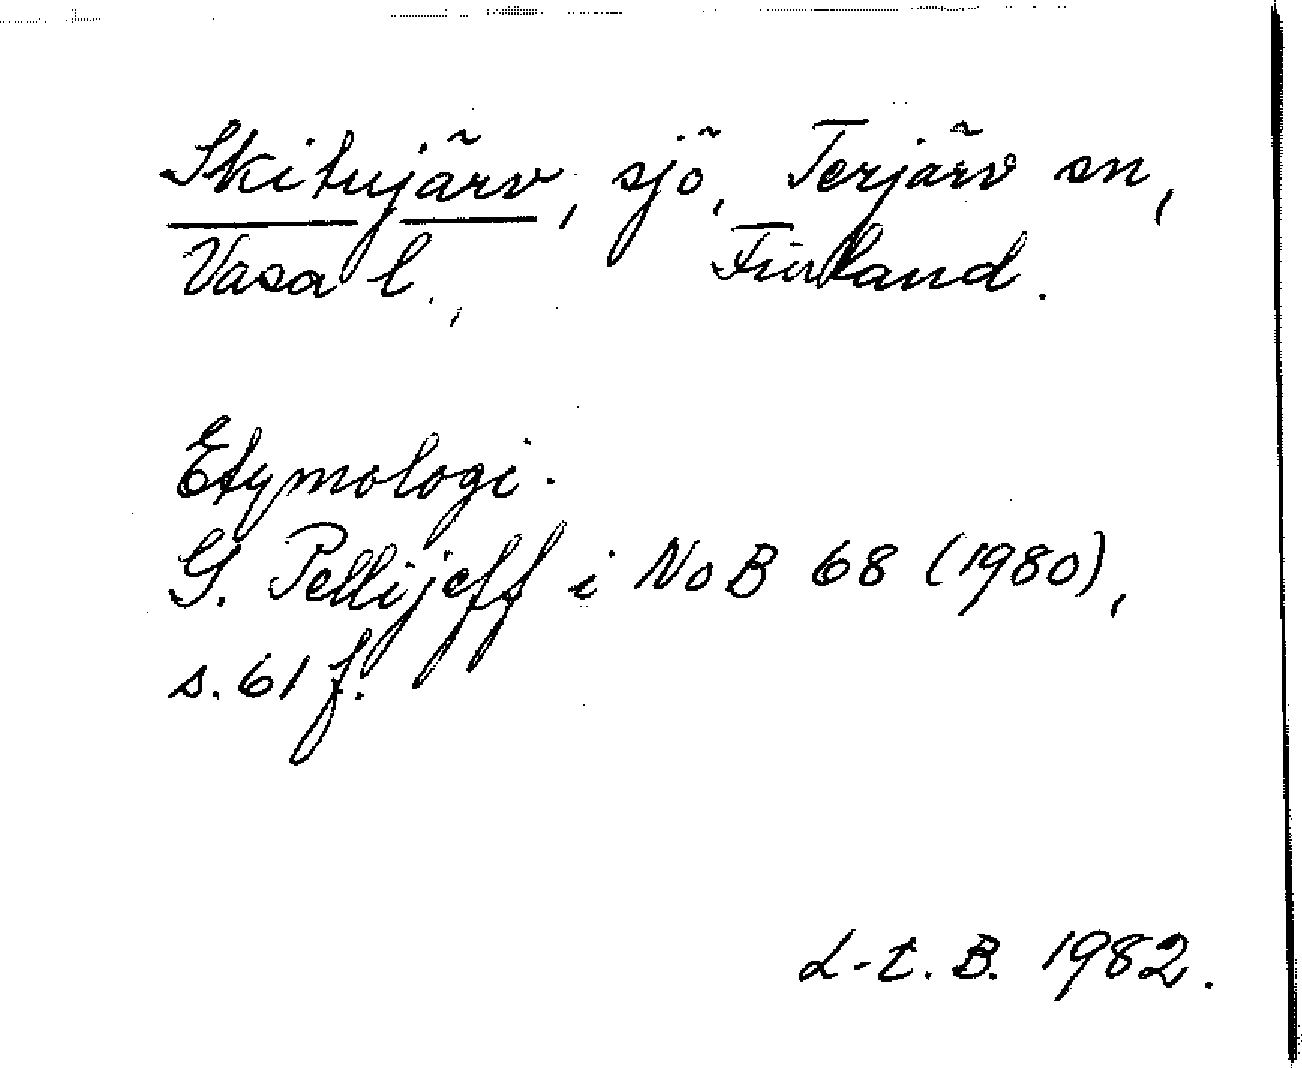 Skitujärv, sjö, Terjärv sn,
Vasa l., Finland.
Etymologi.
G. Pellijeff i NoB 68 (1980),
s. 61 f.
L-t. B. 1982.